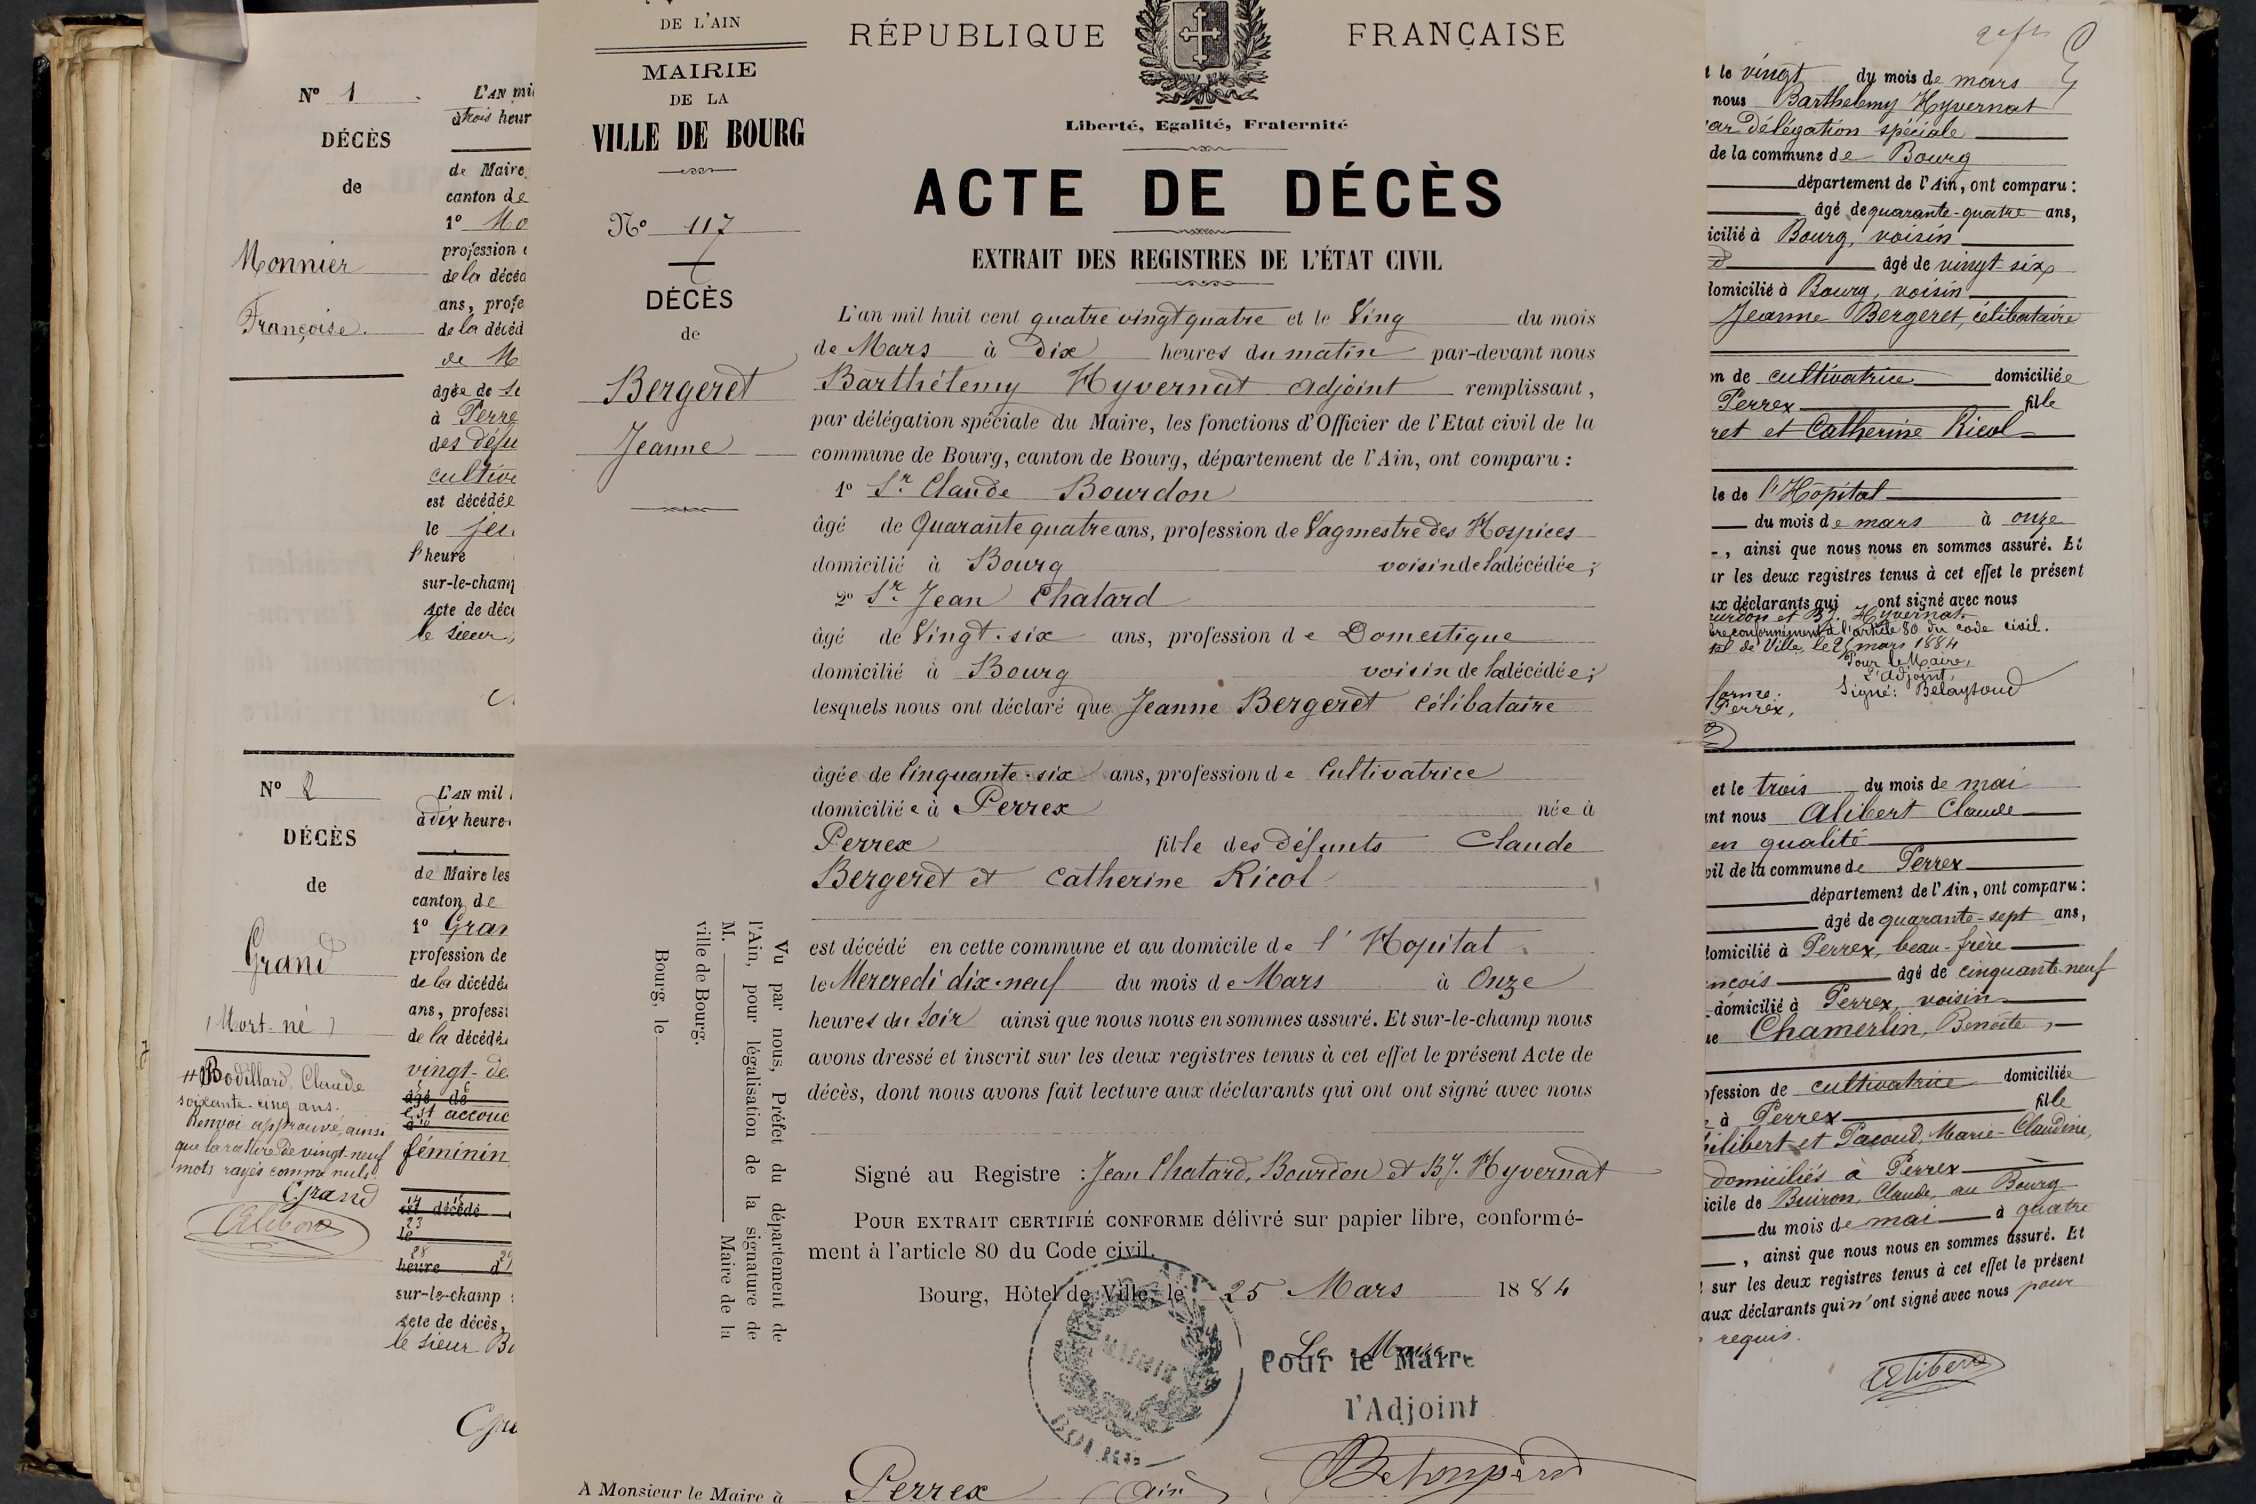 N° 1
DÉCÈS
de
Monnier
Françoise.
L'AN mil
à trois heur
de Maire
canton de
1° Mo
profession
de la décéd
ans, profe
de la décéd
de M
âgée de
à Perre
des défu
cultiv
est décédée
le jeu
l'heure
sur-le-champ
acte de déc
le sieur,
N° 2
DÉCÈS
de
Grand
(Mort-né)
Bodillard, Claude
soixante-cinq ans.
Renvoi approuvé, ainsi
que la rature de vingt-neuf
mots rayés comme nuls.
Grand
Alibert
L'AN mil
à dix heure
de Maire les
canton de
1° Gran
profession de
de la décédé
ans, profess
de la décédé
vingt-de
âgé de
est accouc
féminin
est décédé
le
heure d
sur-le-champ
acte de décès,
le sieur Bo
DE L'AIN
MAIRIE
DE LA
VILLE DE BOURG
N° 117
DÉCÈS
de
Bergeret
Jeanne
RÉPUBLIQUE FRANÇAISE
Liberté, Egalité, Fraternité
ACTE DE DÉCÈS
EXTRAIT DES REGISTRES DE L'ÉTAT CIVIL
L'an mil huit cent quatre vingt quatre et le Ving du mois
de Mars à Dix heures du matin par-devant nous
Barthélemy Hyvernat adjoint remplissant,
par délégation spéciale du Maire, les fonctions d'Officier de l'Etat civil de la
commune de Bourg, canton de Bourg, département de l'Ain, ont comparu :
1° Sr. Claude Bourdon
âgé de Quarante quatre ans, profession de Vagmestre des Hospices
domicilié à Bourg voisin de la décédée ;
2° Sr. Jean Chatard
âgé de Vingt-six ans, profession de Domestique
domicilié à Bourg voisin de la décédée ;
lesquels nous ont déclaré que Jeanne Bergeret Célibataire
âgée de Cinquante-six ans, profession de Cultivatrice
domiciliée à Perrex née à
Perrex fille des défunts Claude
Bergeret et Catherine Ricol
est décédé en cette commune et au domicile de l'Hopital
le Mercredi dix-neuf du mois de Mars à Onze
heures du Soir ainsi que nous nous en sommes assuré. Et sur-le-champ nous
avons dressé et inscrit sur les deux registres tenus à cet effet le présent Acte de
décès, dont nous avons fait lecture aux déclarants qui ont ont signé avec nous
Signé au Registre : Jean Chatard, Bourdon et By. Hyvernat
POUR EXTRAIT CERTIFIÉ CONFORME délivré sur papier libre, conformé-
ment à l'article 80 du Code civil.
Bourg, Hôtel de Ville, le 25 Mars 1884
Le Maire
Pour le Maire
l'Adjoint
MAIRIE
BOURG
A Monsieur le Maire à Perrex (Ain)
Vu par nous, Préfet du département de
l'Ain, pour légalisation de la signature de
M. Maire de la
ville de Bourg.
Bourg, le
le vingt du mois de mars
nous Barthélemy Hyvernat
par délégation spéciale
de la commune de Bourg
département de l'Ain, ont comparu :
âgé de quarante-quatre ans,
icilié à Bourg, voisin
âgé de vingt-six
domicilié à Bourg, voisin
Jeanne Bergeret, célibataire
on de cultivatrice domiciliée
Perrex fille
ret et Catherine Ricol
le de l'Hopital
du mois de mars à onze
, ainsi que nous nous en sommes assuré. Et
ur les deux registres tenus à cet effet le présent
ux déclarants qui ont signé avec nous
urdon et By. Hyvernat
bre conformément à l'article 80 du code civil.
tel de Ville, le 25 mars 1884
Pour le Maire,
L'adjoint,
forme : Signé :
Perrex,
et le trois du mois de mai
nt nous Alibert Claude
en qualité
vil de la commune de Perrex
département de l'Ain, ont comparu :
âgé de quarante-sept ans,
domicilié à Perrex, beau-frère
nçois âgé de cinquante-neuf
domicilié à Perrex, voisin
ue Chamerlin, Benoîte,
ofession de cultivatrice domiciliée
à Perrex fille
hilibert et Pacoud, Marie-Claudine,
domiciliés à Perrex
icile de Buiron, Claude, au Bourg
du mois de mai à quatre
, ainsi que nous nous en sommes assuré. Et
sur les deux registres tenus à cet effet le présent
aux déclarants qui n'ont signé avec nous pour
requis.
Alibert